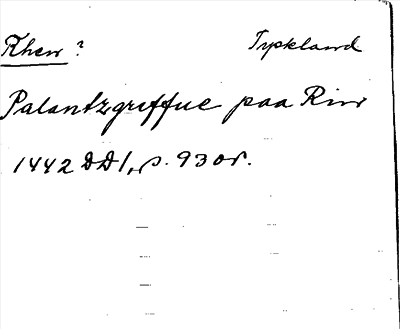 Rhen? Tyskland
Palantzgreffue paa Rin
1442 DD 1, s. 930r.